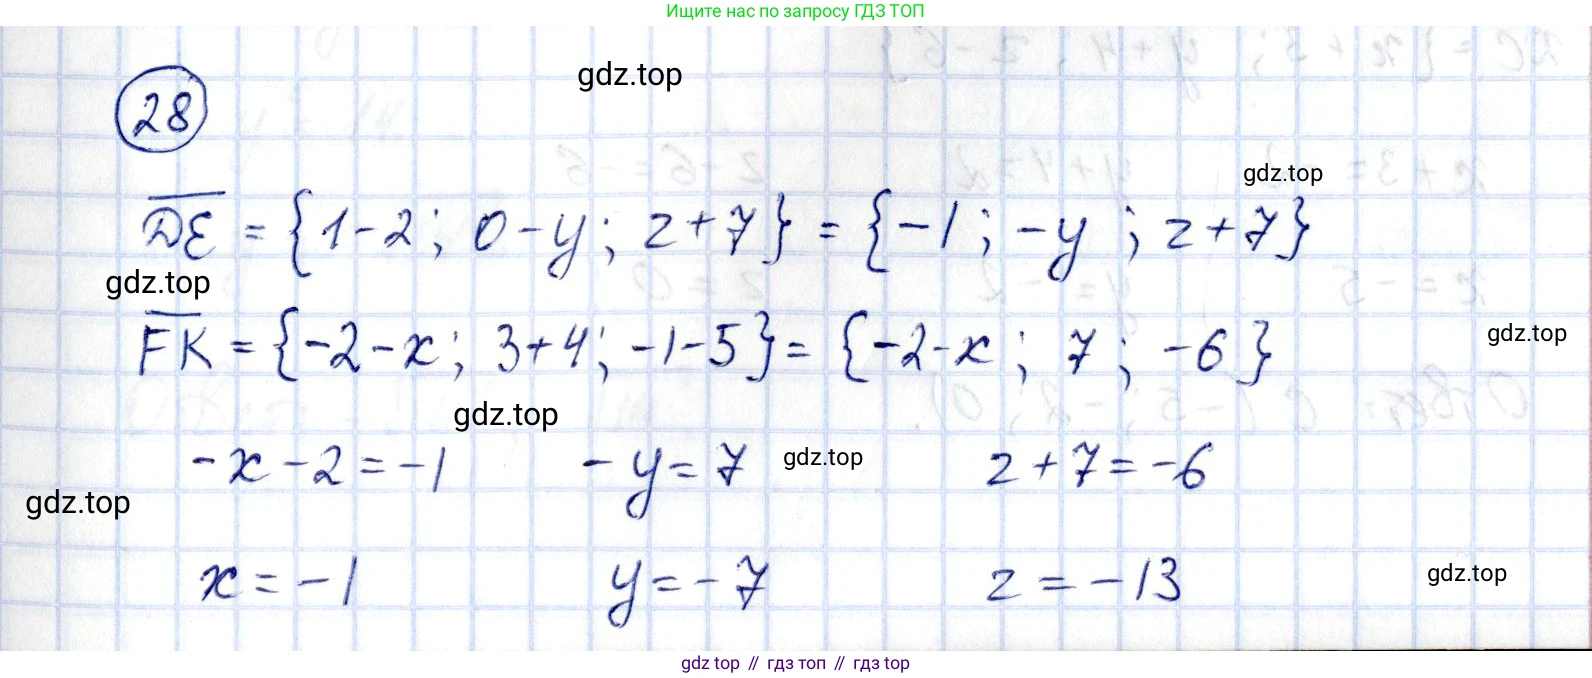 Ищите нас по запросу ГДЗ ТОП
gdz.top
28
gdz.top
DE = {1-2; 0-y; z+7} = {-1; -y; z+7}
gdz.top
FK = {-2-x; 3+4; -1-5} = {-2-x; 7; -6}
gdz.top
gdz.top
-x-2=-1 -y=7 gdz.top z+7=-6
gdz.top
x=-1 y=-7 z=-13 gdz.top
gdz top // гдз топ // гдз top